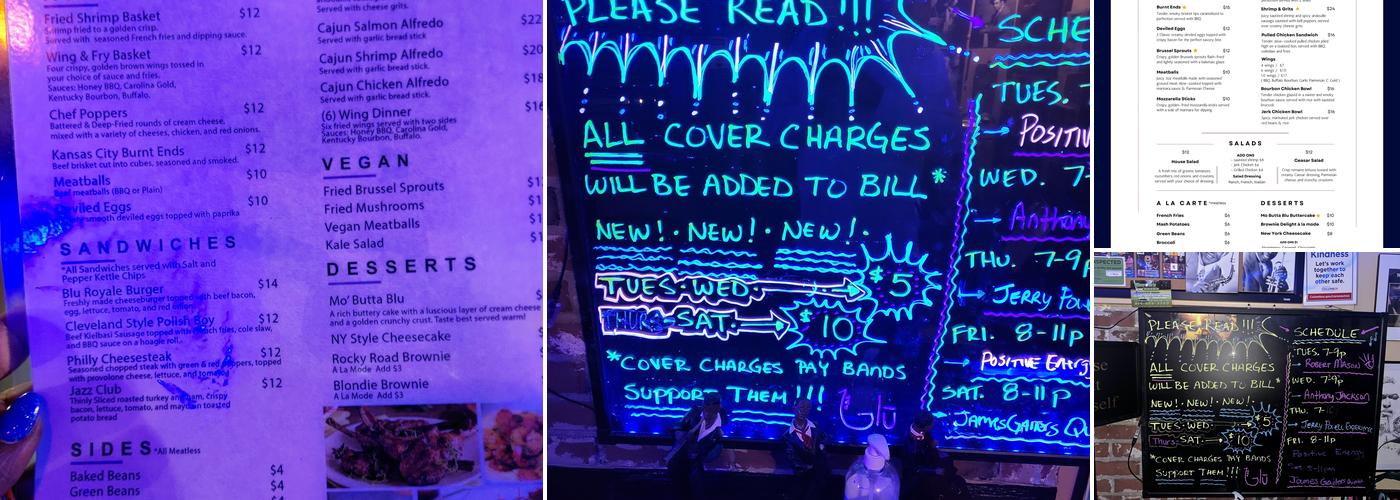 Fried Shrimp Basket $12
Shrimp fried to a golden crisp.
Served with seasoned French fries and dipping sauce.
Wing & Fry Basket $12
Four crispy, golden brown wings tossed in
your choice of sauce and fries.
Sauces: Honey BBQ, Carolina Gold,
Kentucky Bourbon, Buffalo.
Chef Poppers $12
Battered & Deep-Fried rounds of cream cheese,
mixed with a variety of cheeses, chicken, and red onions.
Kansas City Burnt Ends $12
Beef brisket cut into cubes, seasoned and smoked.
Meatballs $10
Beef meatballs (BBQ or Plain)
Deviled Eggs $10
smooth deviled eggs topped with paprika
SANDWICHES
*All Sandwiches served with Salt and
Pepper Kettle Chips
Blu Royale Burger $14
Freshly made cheeseburger topped with beef bacon,
egg, lettuce, tomato, and red onion
Cleveland Style Polish Boy $12
Beef Kielbasi Sausage topped with french fries, cole slaw,
and BBQ sauce on a hoagie roll.
Philly Cheesesteak $12
Seasoned chopped steak with green & red peppers, topped
with provolone cheese, lettuce, and tomato
Jazz Club $12
Thinly Sliced roasted turkey and ham, crispy
bacon, lettuce, tomato, and mayo on toasted
potato bread
SIDES *All Meatless
Baked Beans $4
Green Beans $4
Served with cheese grits.
Cajun Salmon Alfredo $22
Served with garlic bread stick.
Cajun Shrimp Alfredo $20
Served with garlic bread stick.
Cajun Chicken Alfredo $18
Served with garlic bread stick.
(6) Wing Dinner $16
Six fried wings served with two sides
Sauces: Honey BBQ, Carolina Gold,
Kentucky Bourbon, Buffalo.
VEGAN
Fried Brussel Sprouts
Fried Mushrooms
Vegan Meatballs
Kale Salad
DESSERTS
Mo' Butta Blu
A rich buttery cake with a luscious layer of cream cheese
and a golden crunchy crust. Taste best served warm!
NY Style Cheesecake
Rocky Road Brownie
A La Mode Add $3
Blondie Brownie
A La Mode Add $3
PLEASE READ!!!
ALL COVER CHARGES
WILL BE ADDED TO BILL*
NEW!·NEW!·NEW!·
TUES·WED $5
THURS·SAT. $10
*COVER CHARGES PAY BANDS
SUPPORT THEM!!! Glü
SCHE
TUES. 7
POSITIV
WED. 7-
Anthony
THU. 7-9p
JERRY POW
FRI. 8-11p
POSITIVE ENERG
SAT. 8-11p
JAMES GAITERS QU
Burnt Ends $15
Deviled Eggs $12
Brussel Sprouts $12
Meatballs $10
Mozzarella Sticks $10
Shrimp & Grits $24
Pulled Chicken Sandwich $16
Wings
4 wings / $7
6 wings / $10
10 wings / $17
Bourbon Chicken Bowl $16
Jerk Chicken Bowl $16
SALADS
$12
House Salad
ADD ONS
Salad Dressing
Ranch, French, Italian
$12
Caesar Salad
A LA CARTE *meatless
French Fries $6
Mash Potatoes $6
Green Beans $6
Broccoli $6
DESSERTS
Mo Butta Blu Buttercake $10
Brownie Delight a la mode $10
New York Cheesecake $8
Kindness
Let's work
together to
keep each
other safe.
PLEASE READ!!!
ALL COVER CHARGES
WILL BE ADDED TO BILL*
NEW!·NEW!·NEW!·
TUES·WED $5
Thurs·SAT. $10
*COVER CHARGES PAY BANDS
SUPPORT THEM!!! Glü
SCHEDULE
TUES. 7-9p
ROBERT MASON
WED. 7-9p
Anthony Jackson
THU. 7-
JERRY POWELL EXPERIENCE
FRI. 8-11p
Positive Energy
Sat. 8-11pm
James Gaiters